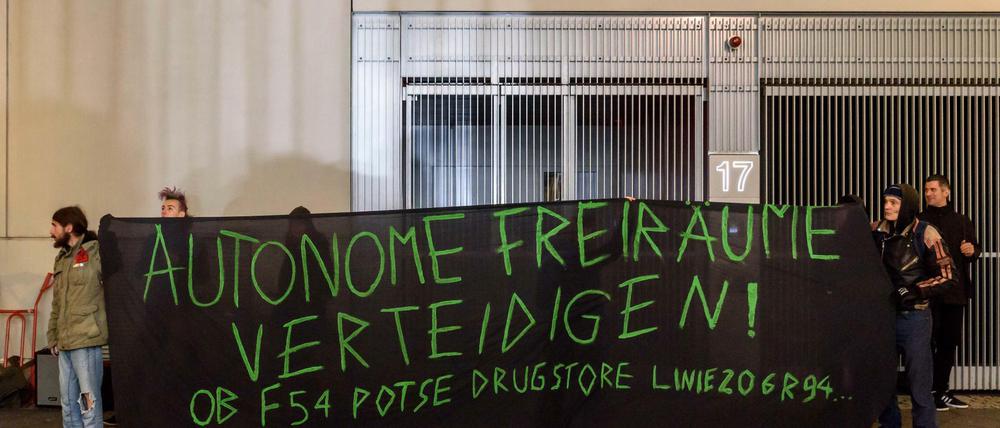 17
AUTONOME FREIRÄUME
VERTEIDIGEN!
OB F54 POTSE DRUGSTORE LINIE206R94...